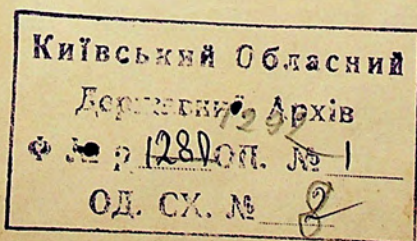 Київський Обласний
Державний Архів
Ф № р 1280 ОП. № 1
ОД. СХ. № 8